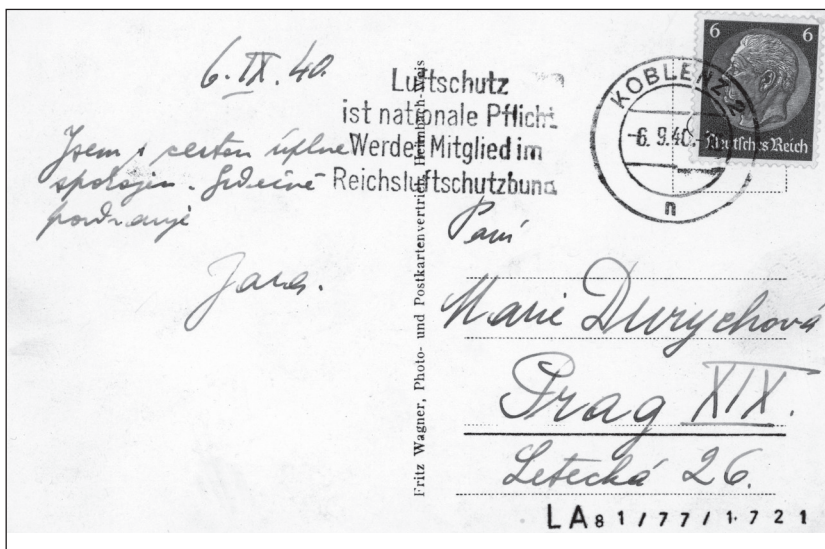 6. IX. 40.
Jsem s cestou úplně
spokojen. Srdečně
pozdravuje
Jara.
Luftschutz
ist nationale Pflicht
Werdet Mitglied im
Reichsluftschutzbund
KOBLENZ 2
6.9.40.
n
6 6
Deutsches Reich
Fritz Wagner, Photo- und Postkartenvertrieb,
Paní
Marie Durychová
Prag XIX.
Letecká 26.
LA 81/77/1721